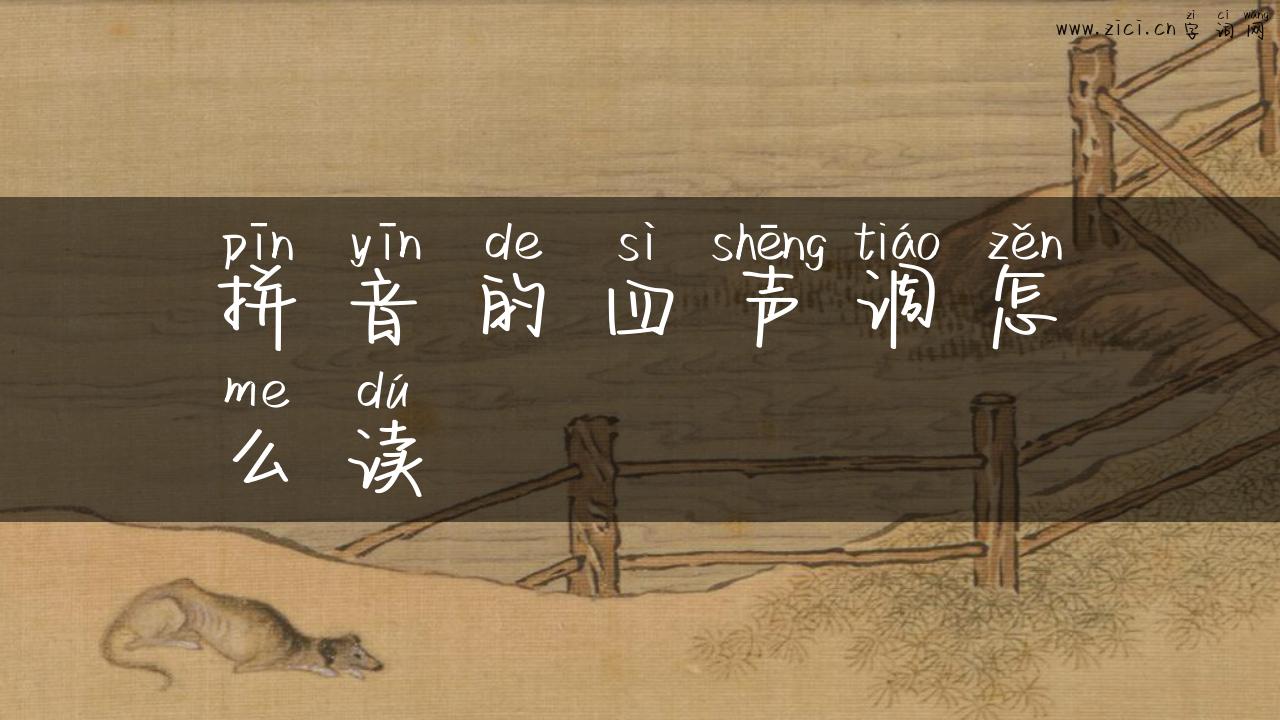 zì cí wǎng
www.zici.cn 字词网
pīn yīn de sì shēng tiáo zěn
拼音的四声调怎
me dú
么读